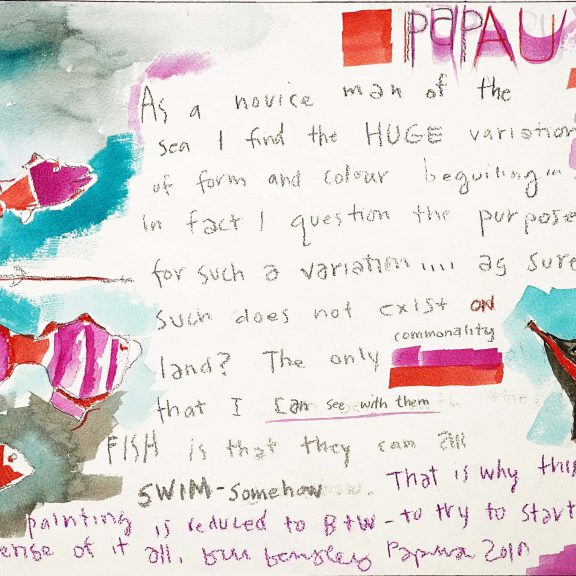 PAPAU
As a novice man of the
sea I find the HUGE variation
of form and colour beguiling...
in fact I question the purpose
for such a variation.... as sure
such does not exist on
commonality
land? The only
that I can see with them
FISH is that they can all
SWIM-somehow.
That is why this
painting is reduced to B+W - to try to start
ense of it all. Papua